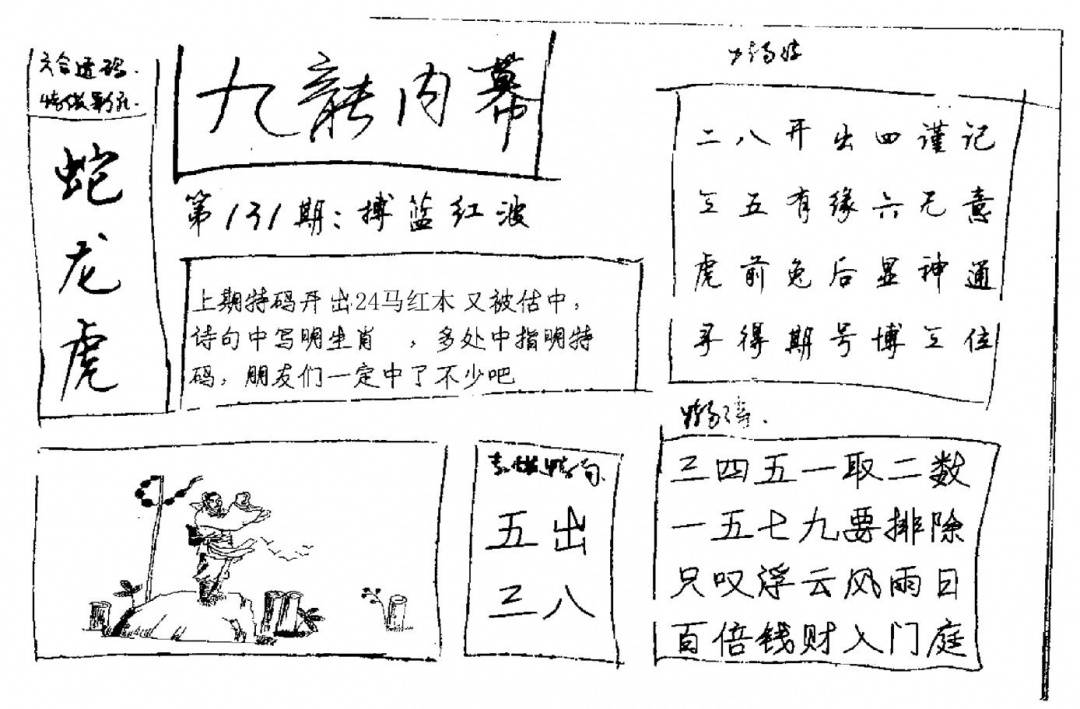 六合透码
蛇
龙
虎
九龍内幕
第131期：搏蓝红波
上期特码开出24马红本又被估中，
待句中写明生肖　，多处中指明特
码，朋友们一定中了不少吧
二八开出四谨记
三五有缘六无意
虎前兔后显神通
寻得期号博三位
五出
三八
三四五一取二数
一五七九要排除
只叹浮云风雨日
百倍钱财入门庭